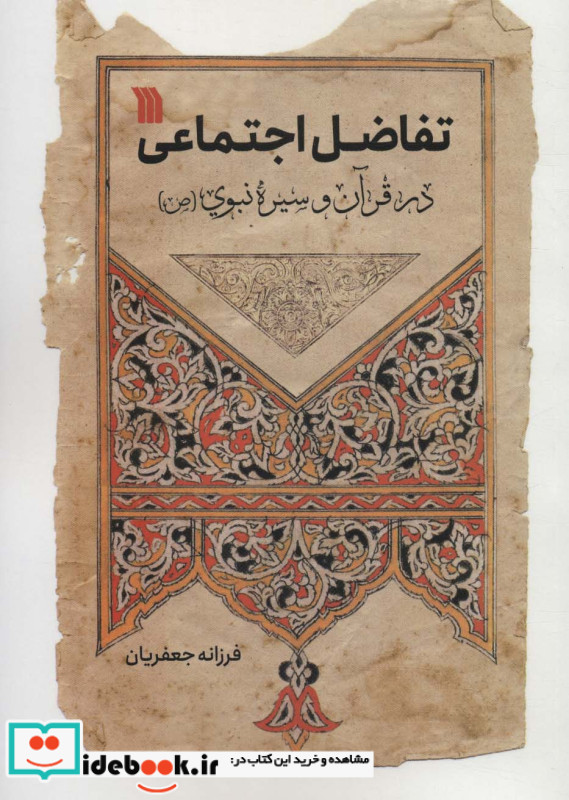 تفاضل اجتماعی
در قرآن و سیرهٔ نبوي (ص)
فرزانه جعفریان
مشاهده و خرید این کتاب در:
idebook.ir